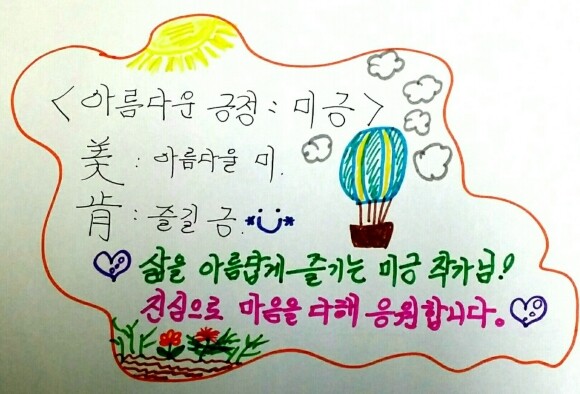 <아름다운 긍정: 미긍>
美 : 아름다울 미.
肯 : 즐길 긍.
삶을 아름답게 즐기는 미긍 작가님!
진심으로 마음을 다해 응원합니다.